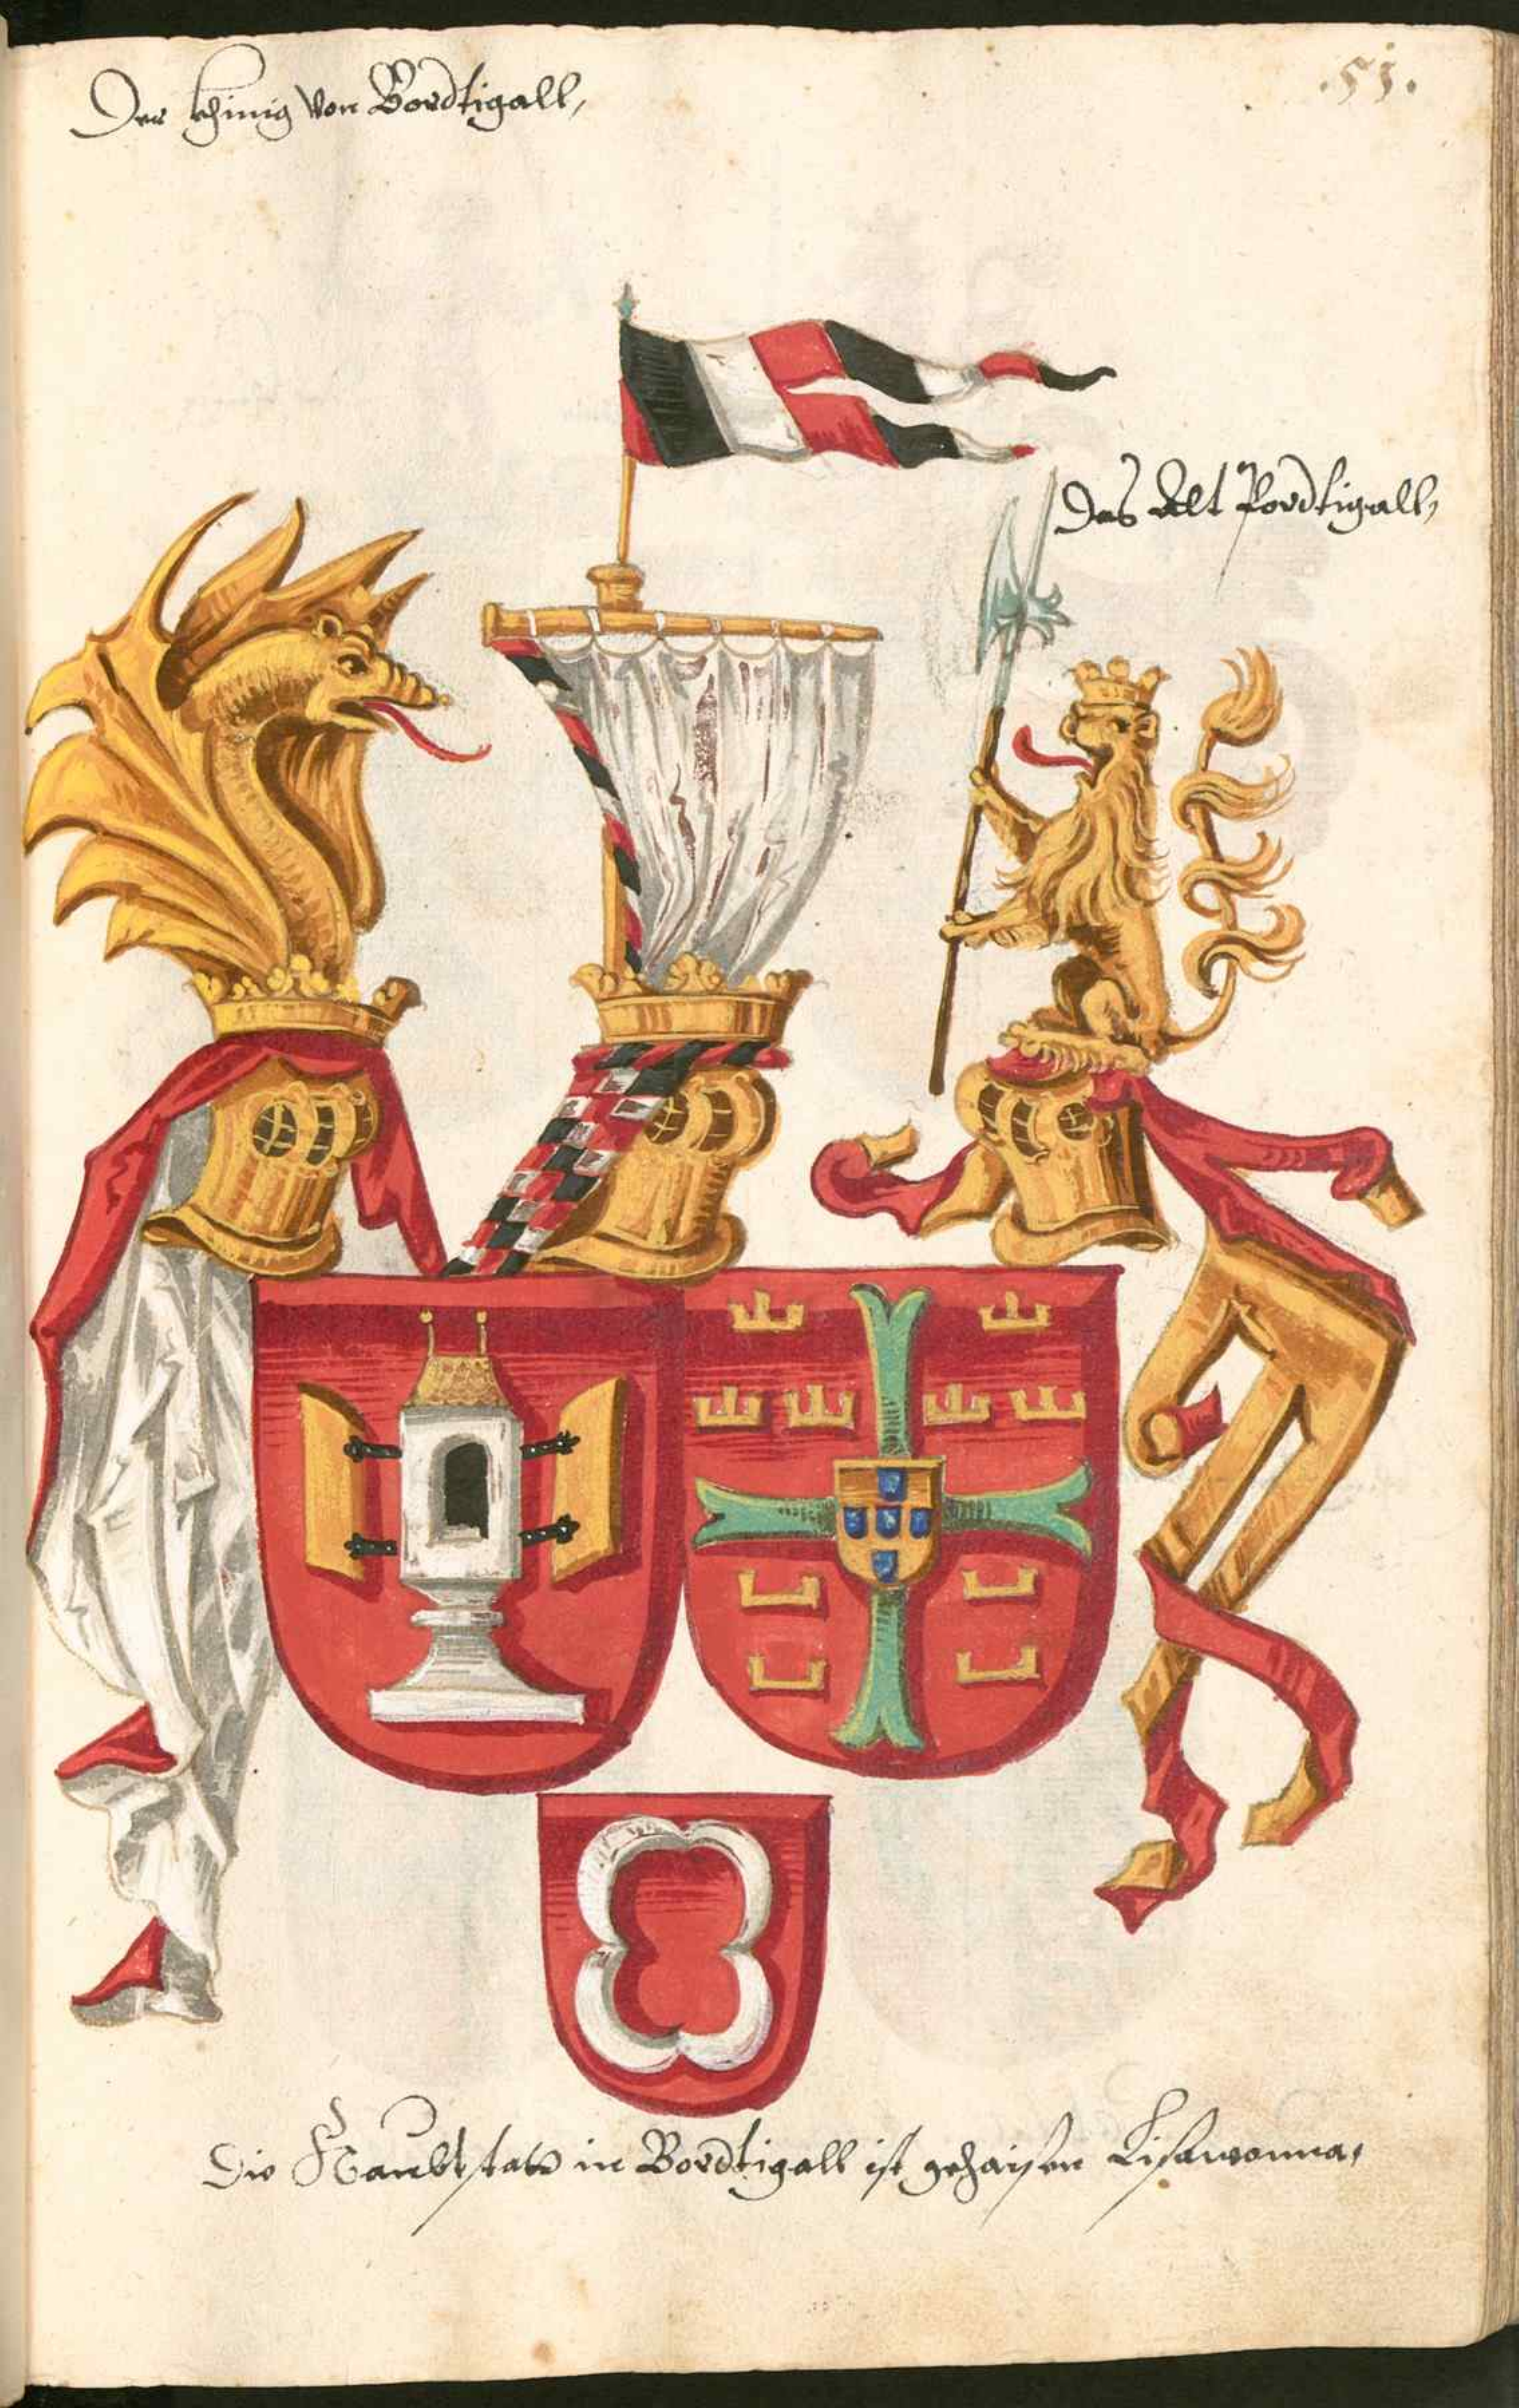 Der khinig von Bordtigall,
.51.
Das Alt Pordtigall,
Die Haubtstatt in Bordtigall ist gehaisen Lisawonna,